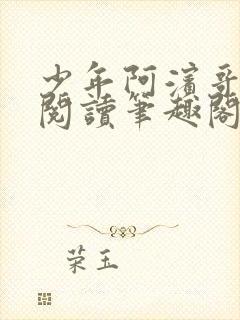 少年阿濱哥
閱讀筆趣閣
荣玉